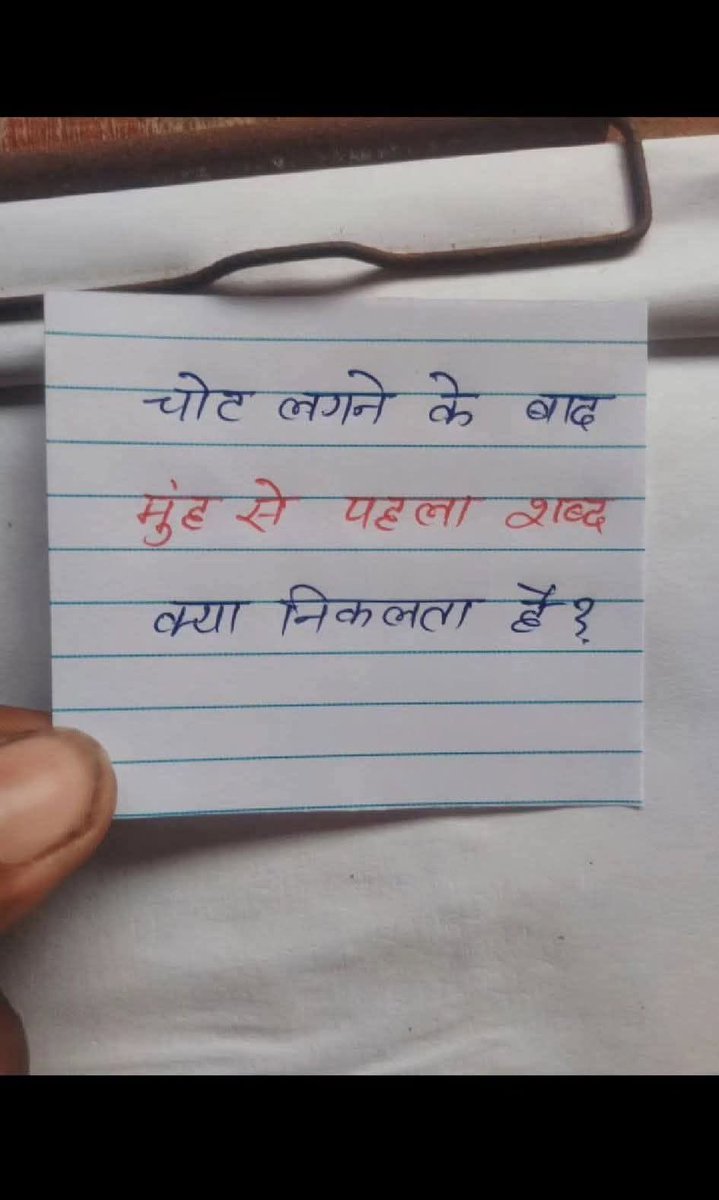 चोट लगने के बाद
मुंह से पहला शब्द
क्या निकलता है?